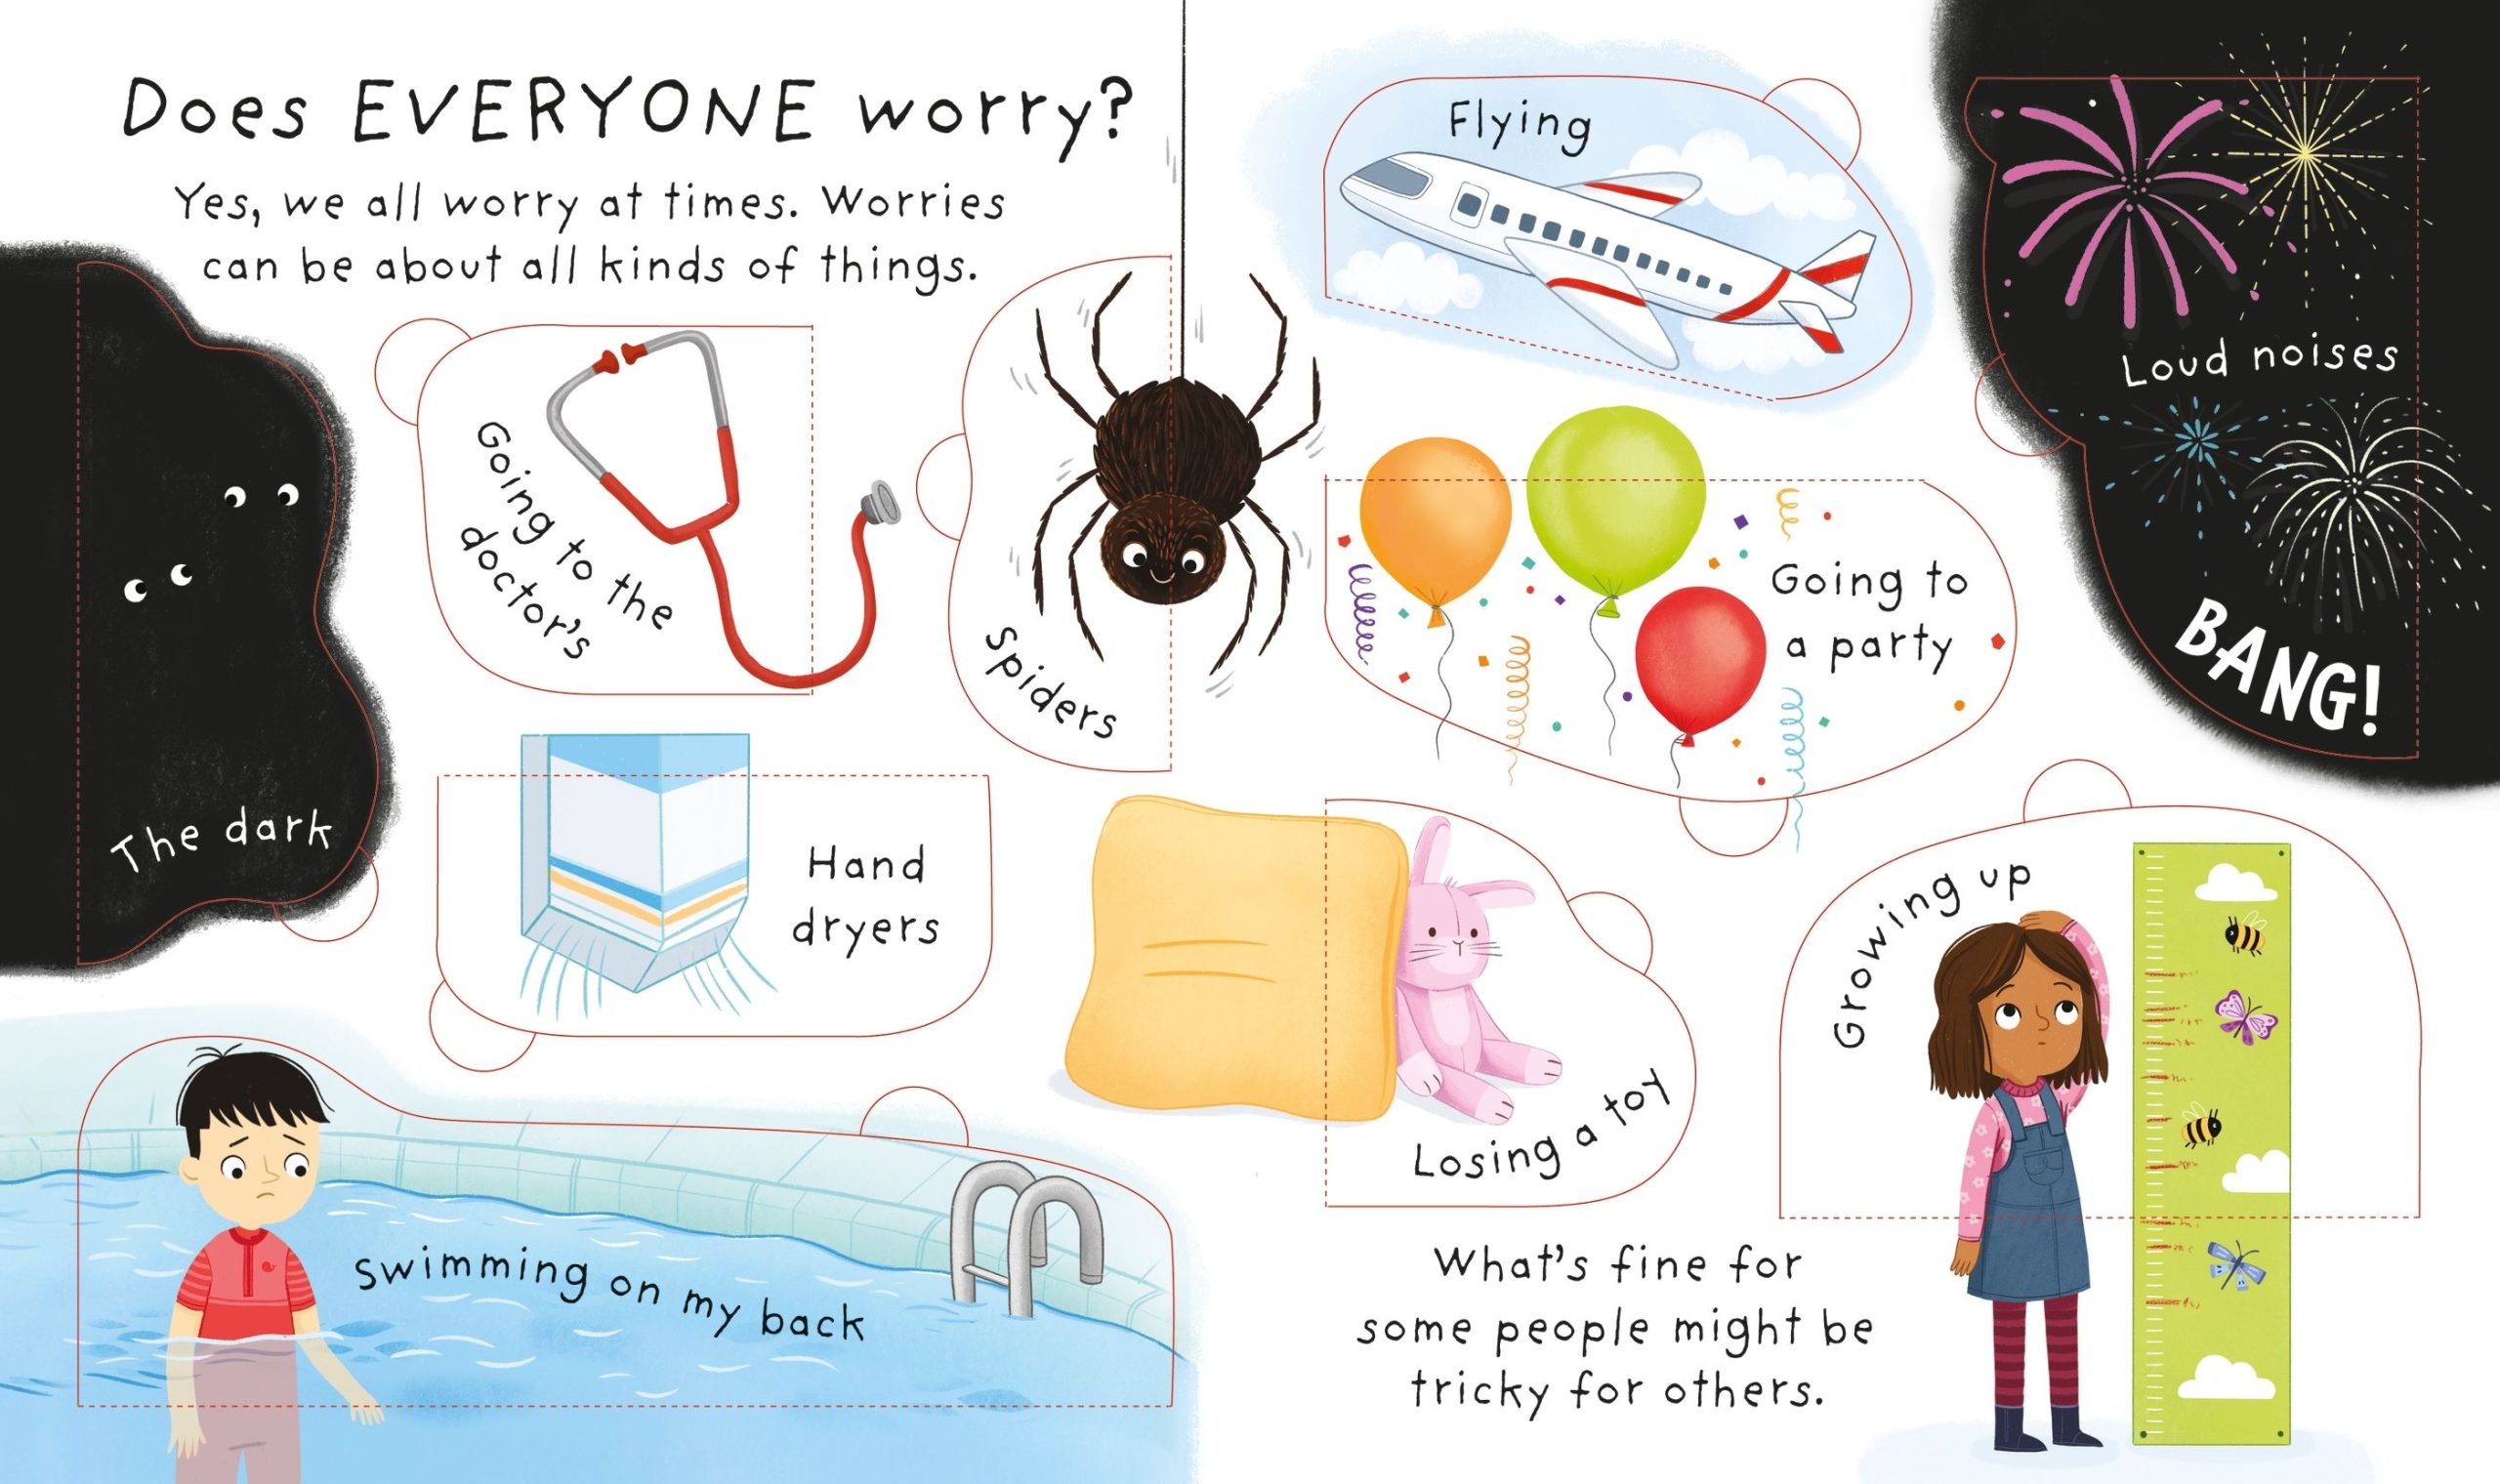 Does EVERYONE worry?
Yes, we all worry at times. Worries
can be about all kinds of things.
The dark
Going to the
doctor's
Spiders
Hand
dryers
Swimming on my back
Flying
Loud noises
BANG!
Going to
a party
Losing a toy
Growing up
What's fine for
some people might be
tricky for others.